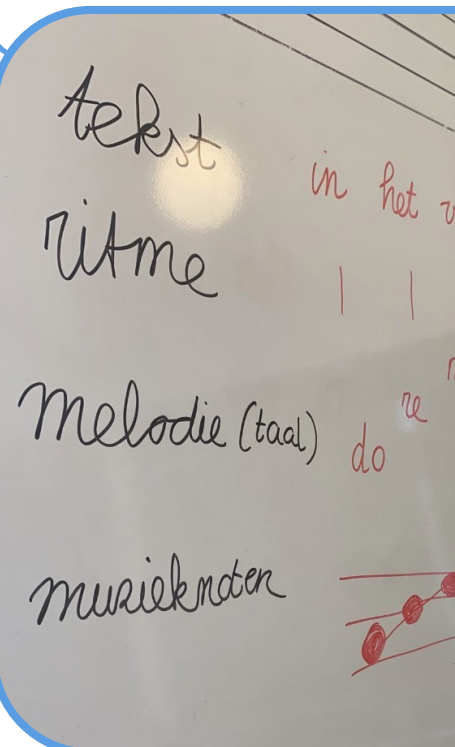 tekst
in het
ritme
melodie (taal)
do
re
muzieknoten